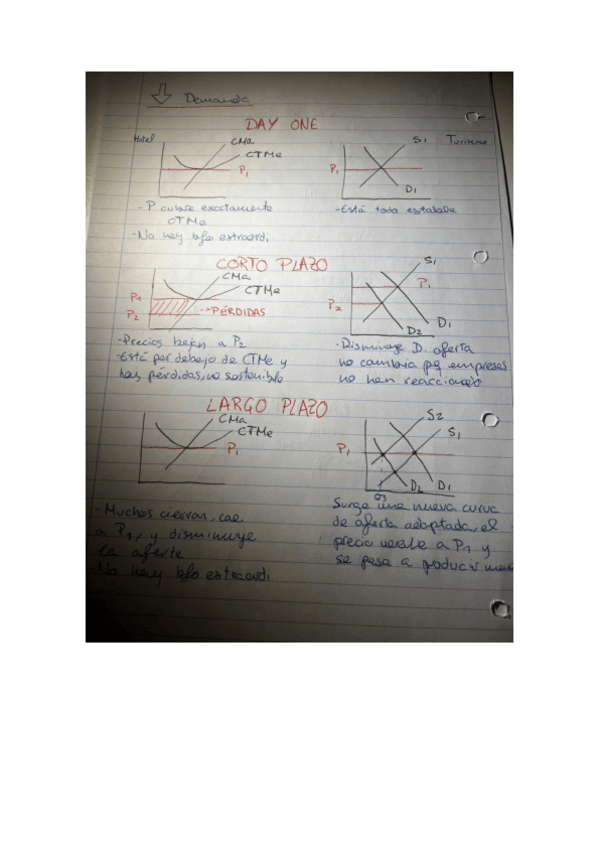 Demanda
DAY ONE
Hotel
CMa
CTMe
P1
P1
S1
D1
Turismo
- P cubre exactamente
CTMe
- No hay bfo extraordi
- Está todo estable
CORTO PLAZO
CMa
CTMe
P1
P2
→ PÉRDIDAS
S1
P1
P2
D2
D1
- Precios bajan a P2
- Está por debajo de CTMe y
hay pérdidas, no sostenible
- Disminuye D. oferta
no cambia pq empresas
no han reaccionado
LARGO PLAZO
CMa
CTMe
P1
P1
S2
S1
D2
D1
Q3
- Muchos cierran, cae
a P1, y disminuye
la oferta
- No hay bfo extraordi
Surge una nueva curva
de oferta adaptada, el
precio vuelve a P1 y
se pasa a producir menos